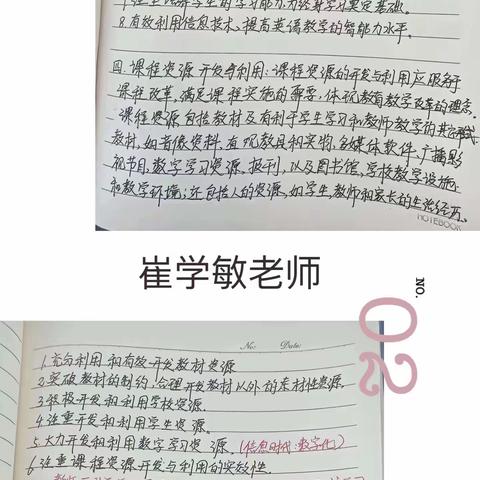 8.有效利用信息技术、提高英语教学的智能力水平。
四.课程资源开发与利用:课程资源的开发与利用应服务于
课程改革,满足课程实施的需要,体现教育教学改革的理念.
课程资源包括教材及有利于学生学习和教师教学的其
教材,如音像资料,直观教具和实物,多媒体软件,广播影
视节目,数字学习资源,报刊,以及图书馆,学校教学设施
和教学环境;还包括人的资源,如学生,教师和家长的生活经历。
NOTEBOOK
崔学敏老师
NO.
02
No: Date:
1.充分利用和有效开发教材资源
2.突破教材的制约,合理开发教材以外的素材性资源.
3.积极开发和利用学校资源.
4.注重开发和利用学生资源。
5.大力开发和利用数字学习资源。(信息时代:数字化)
6.注重课程资源开发与利用的实效性.